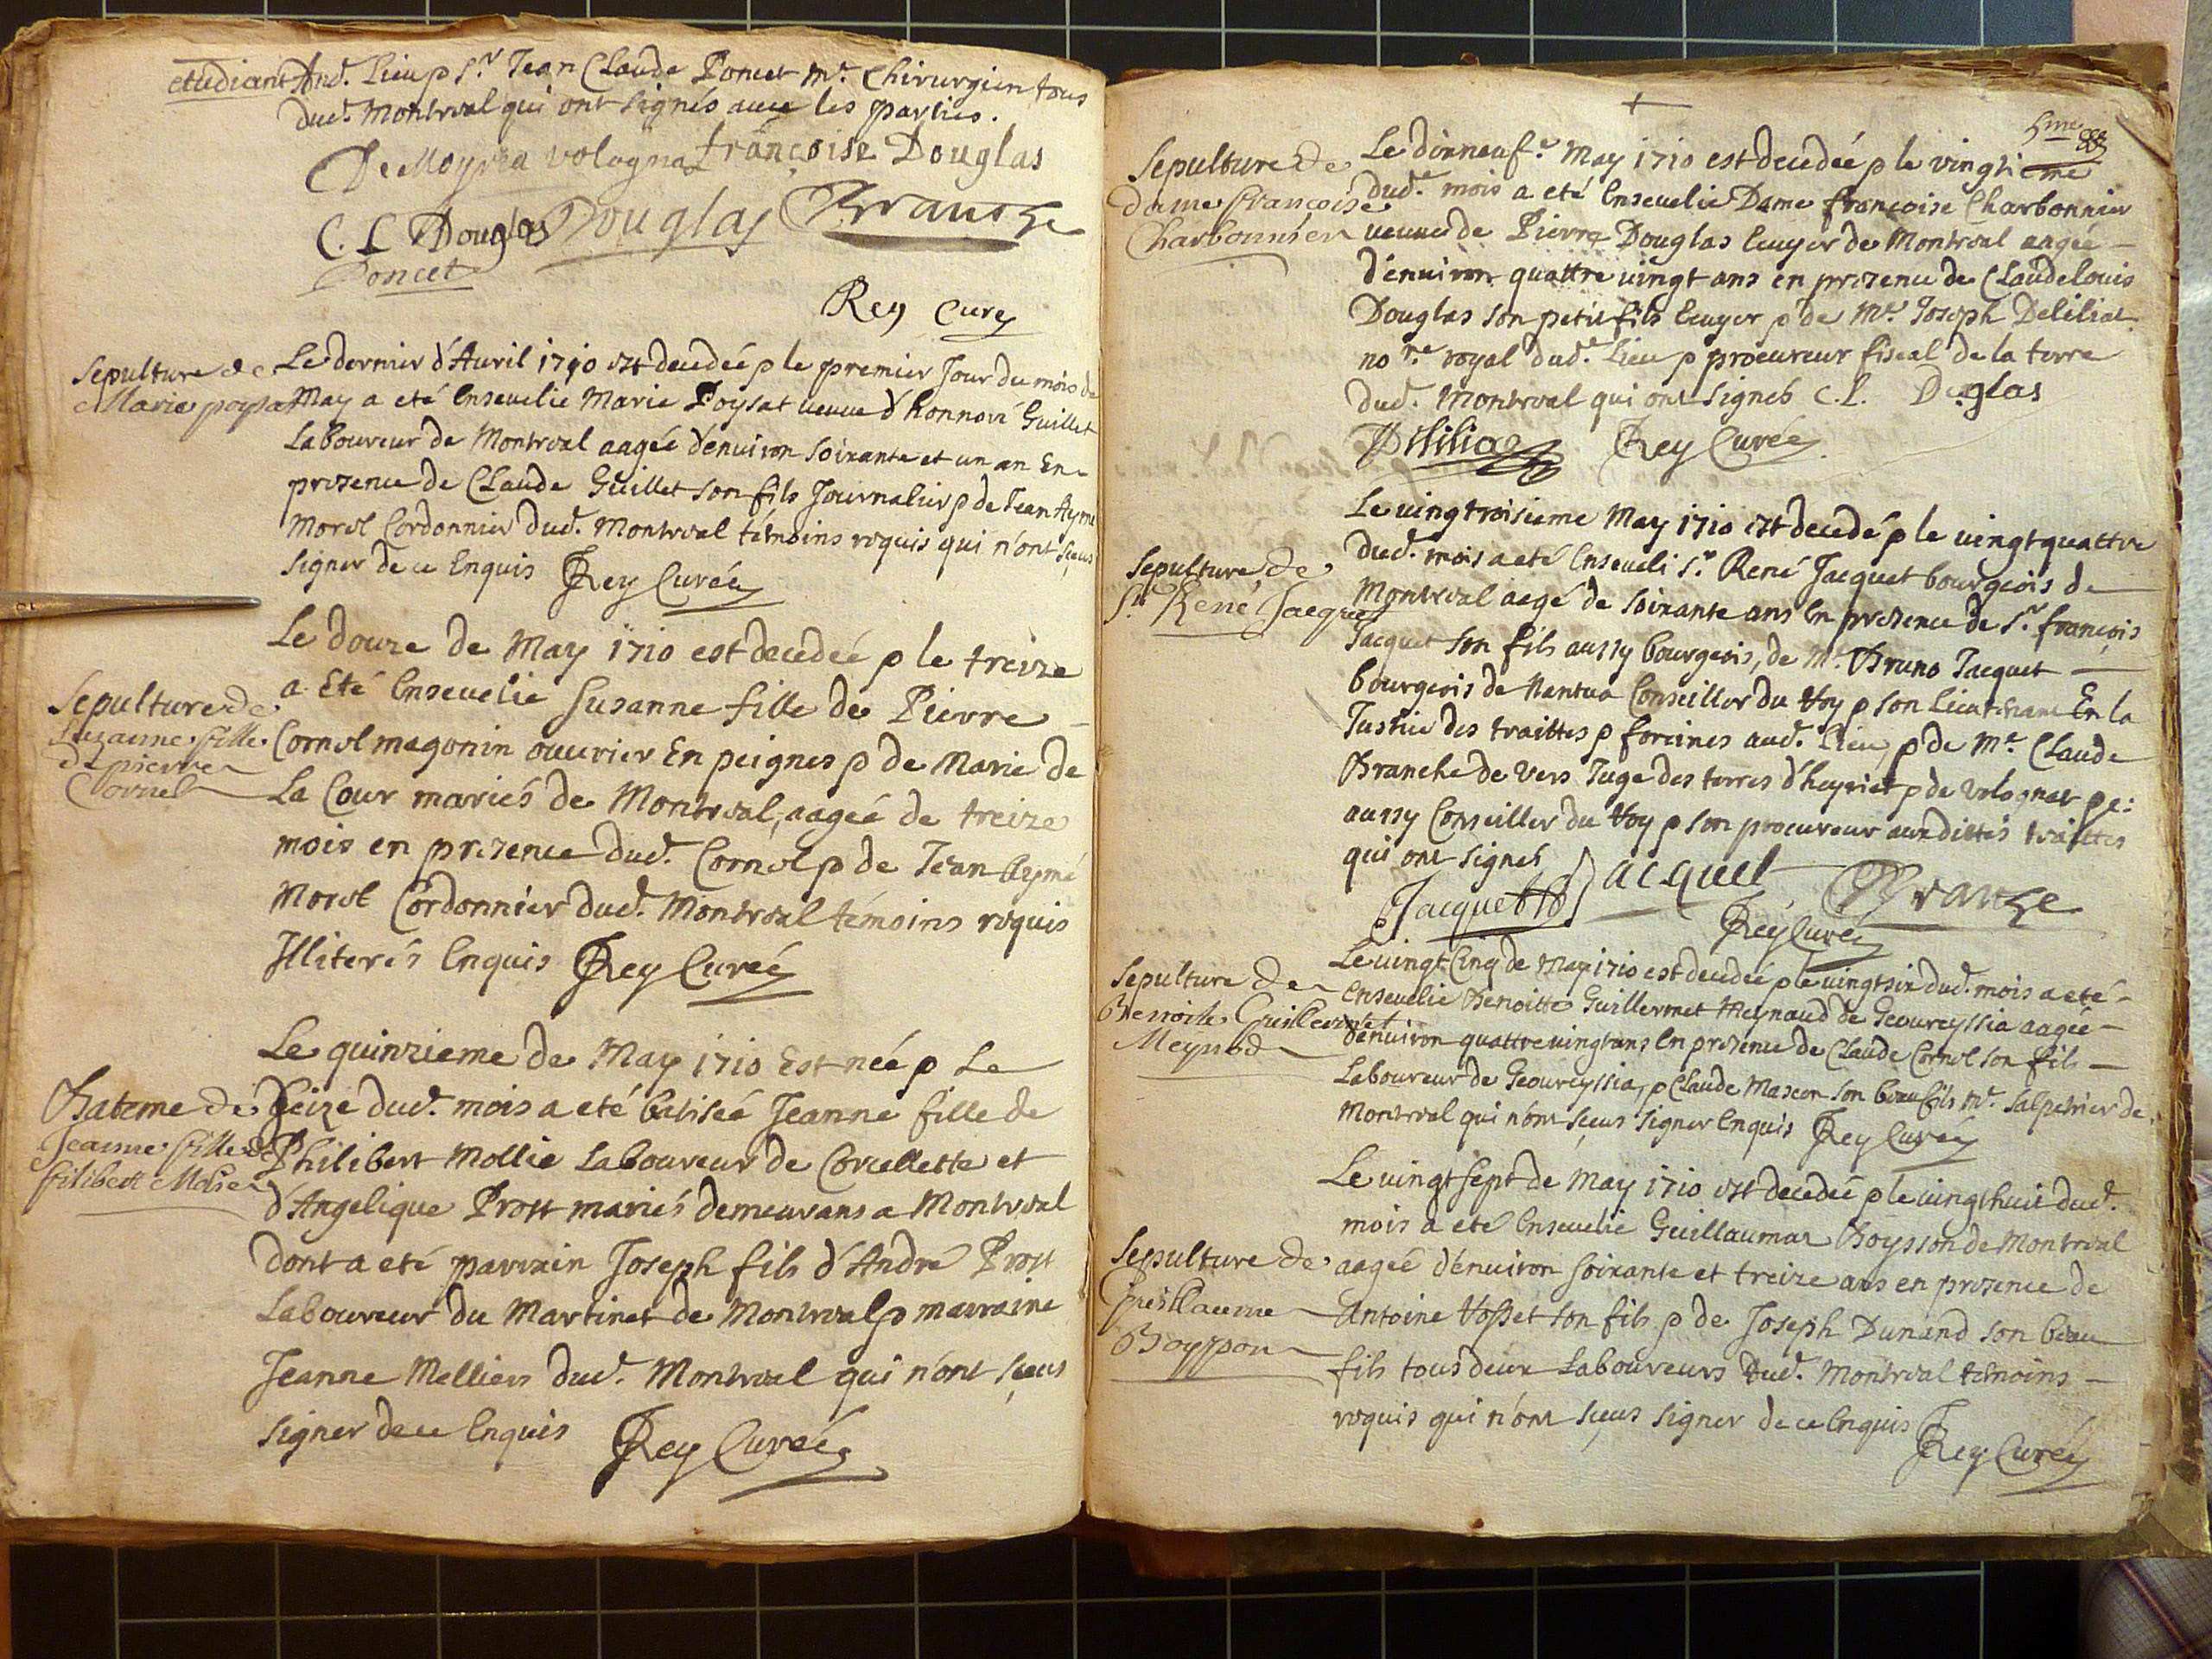 etudiant Aud. Lieu p Sr. Jean Claude Poncet Mr. Chirurgien tous
dud. Montreal qui ont signés avec les parties.
De Moyria volognat françoise Douglas
C. L Douglas Douglas Branche
Poncet
Rey Curé
Sepulture de
Marie poysat
Le dernier d'Avril 1710 est decedée p le premier Jour du mois de
May a eté Ensevelie Marie Poysat veuve d'honnoré Guillet
Laboureur de Montreal aagée d'environ soixante et un an En
presence de Claude Guillet son fils Journalier p de Jean Aymé
Morel Cordonnier dud. Montreal témoins requis qui n'ont sçeus
signer de ce Enquis Rey Curé
Sepulture de
Suzanne fille
de pierre
Cornel
Le douze de May 1710 est decedée p le treize
a Eté Ensevelie Susanne fille de Pierre
Cornel magonin ouvrier En peignes p de Marie de
La Cour mariés de Montreal, aagée de treize
mois en presence dud. Cornel p de Jean Aymé
Morel Cordonnier dud. Montreal témoins requis
Illiterés Enquis Rey Curé
Bateme de
Jeanne fille de
filibert Molie
Le quinzieme de May 1710 Est née p Le
Seize dud. mois a eté batisée Jeanne fille de
Philibert Mollie Laboureur de Corcellette et
d'Angelique Prost mariés demeurans a Montreal
dont a eté parrain Joseph fils d'André Prost
Laboureur du Martinet de Montreal p marraine
Jeanne Melliers dud. Montreal qui n'ont sçeus
signer de ce Enquis Rey Curé
5me
Sepulture de
dame Françoise
Charbonnier
Le dixneufe. May 1710 est decedée p le vingtieme
dude. mois a eté Ensevelie Dame françoise Charbonnier
veuve de Pierre Douglas Ecuyer de Montreal aagée
d'environ quattre vingt ans en presence de Claudelouis
Douglas son petit fils Ecuyer p de Mr. Joseph Deliliat
nore. royal dude. Lieu p procureur fiscal de la terre
dud. Montreal qui ont signés C. L. Duglas
Dililia Rey Curé
Sepulture de
Sr. René Jacquet
Le vingtroisieme May 1710 est decedé p le vingtquattre
dud. mois a eté Enseveli Sr. René Jacquet bourgeois de
Montreal aagé de soixante ans En presence de Sr. françois
Jacquet son fils aussy bourgeois, de Mr. Bruno Jacquet
bourgeois de Nantua Conseiller du Roy p son Lieutenant En la
Justice des traittes p foreines aud. Lieu, p de Mr. Claude
Branche de Vers Juge des terres d'heyriat p de Volognat pe:
aussy Conseiller du Roy p son procureur auxdittes traittes
qui ont signés
Jacquet Jacquet Branche
Rey Curé
Sepulture de
Benoite Guillermet
Meynod
Le vingt Cinq de May 1710 est decedée p le vingtsix dud. mois a eté
Ensevelie Benoitte Guillermet Meynaud de Geovreyssia aagée
d'environ quattrevingtans En presence de Claude Cornel son fils
Laboureur de Geovreyssia, p Claude Mascon son beau fils Mr. Salpetrier de
Montreal qui n'ont sçeus signer Enquis Rey Curé
Sepulture de
Guillaume
Boysson
Le vingt sept de May 1710 est decedée p le vingthuit dud.
mois a eté Ensevelie Guillaumaz Boysson de Montreal
aagée d'environ soixante et treize ans en presence de
Antoine Rosset son fils p de Joseph Dunand son beau
fils tous deux Laboureurs Dud. Montreal témoins
requis qui n'ont sçeus signer de ce Enquis
Rey Curé